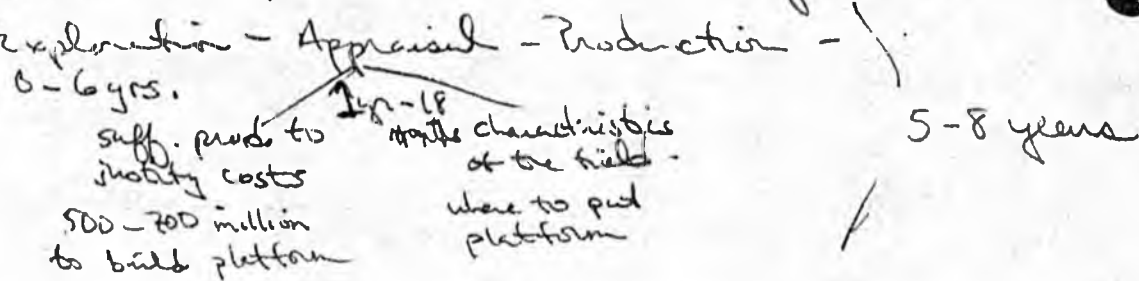 Exploration - Appraisal - Production -
0-6 yrs.
1 yr - 18 months
suff. prod. to justify costs
500-700 million to build platform
characteristics of the field -
where to put platform
5-8 years